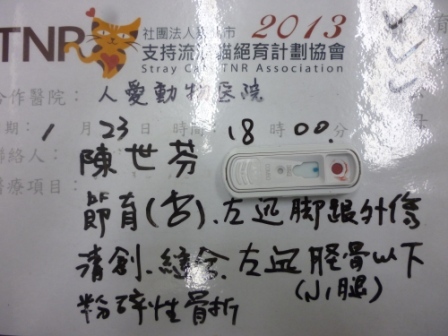 TNR 社團法人 市 2013
支持流浪貓絕育計劃協會
Stray Cat TNR Association
合作醫院： 人愛動物医院
期： 1 月 23 日 時間： 18 時 00 分
聯絡人： 陳世芬
醫療項目：
節育(宮)、左近脚跟外傷
清創、縫合、左近脛骨以下
(小腿)
粉碎性骨折